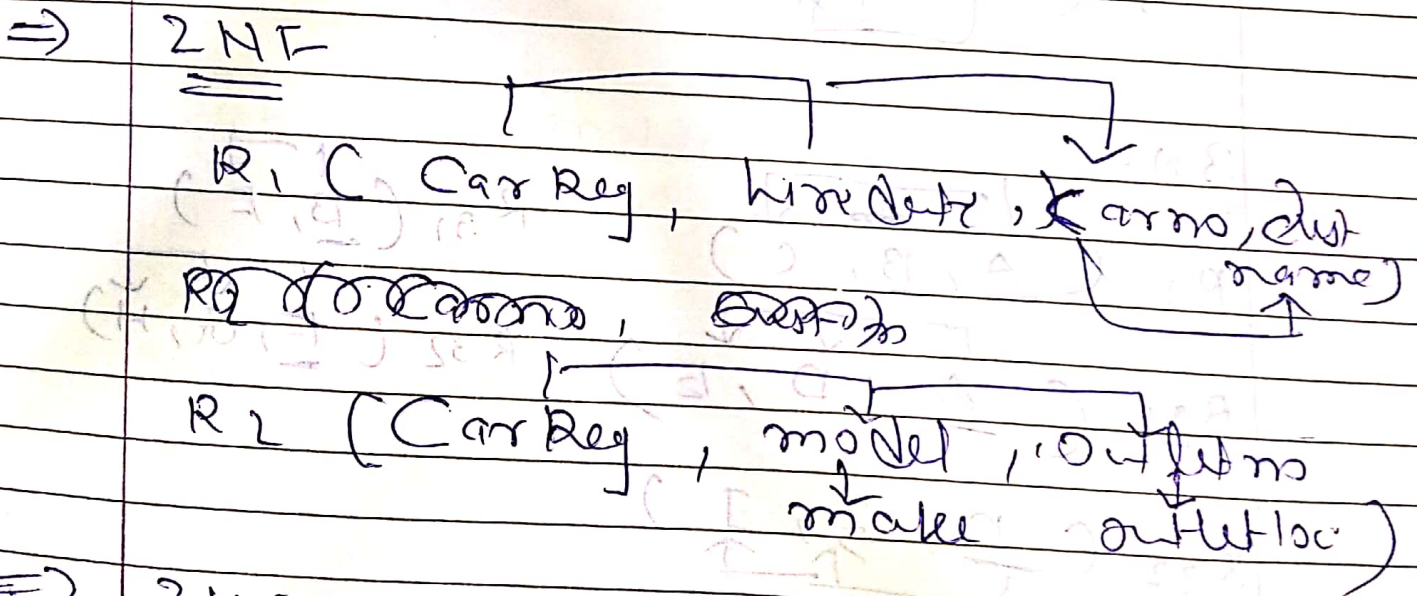 ⇒ 2NF
R1 ( Car Reg, hiredate, Carno, cust
name)
R2 (Car Reg, model, Outletno
make outletloc)